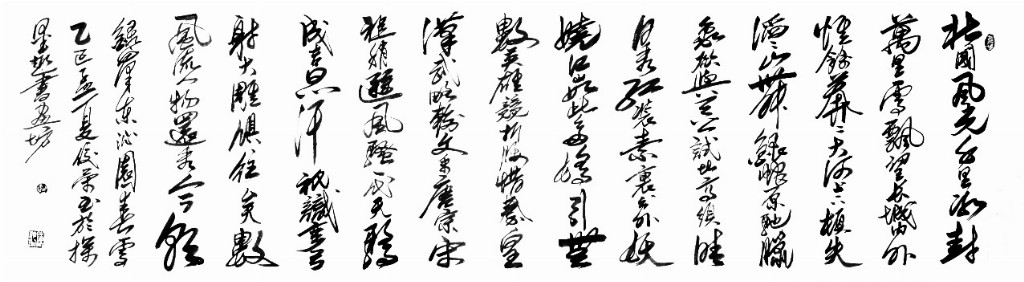 北國風光千里冰封
萬里雪飄望長城內外
惟餘莽々大河上下頓失
滔々山舞銀蛇原馳臘
象欲與天公試比高須晴
日看紅裝素裹分外妖
嬈江山如此多嬌引無
數英雄競折腰惜秦皇
漢武略輸文采唐宗宋
祖稍遜風騷一代天驕
成吉思汗祇識彎弓
射大雕俱往矣數
風流人物還看今朝
錄澤東沁園春雪
乙巳孟夏書於
墨書畫坊